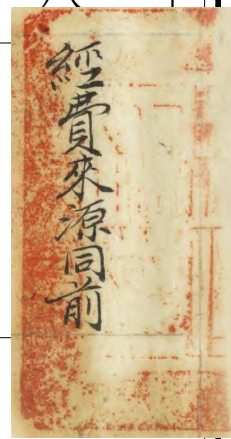 經費來源同前